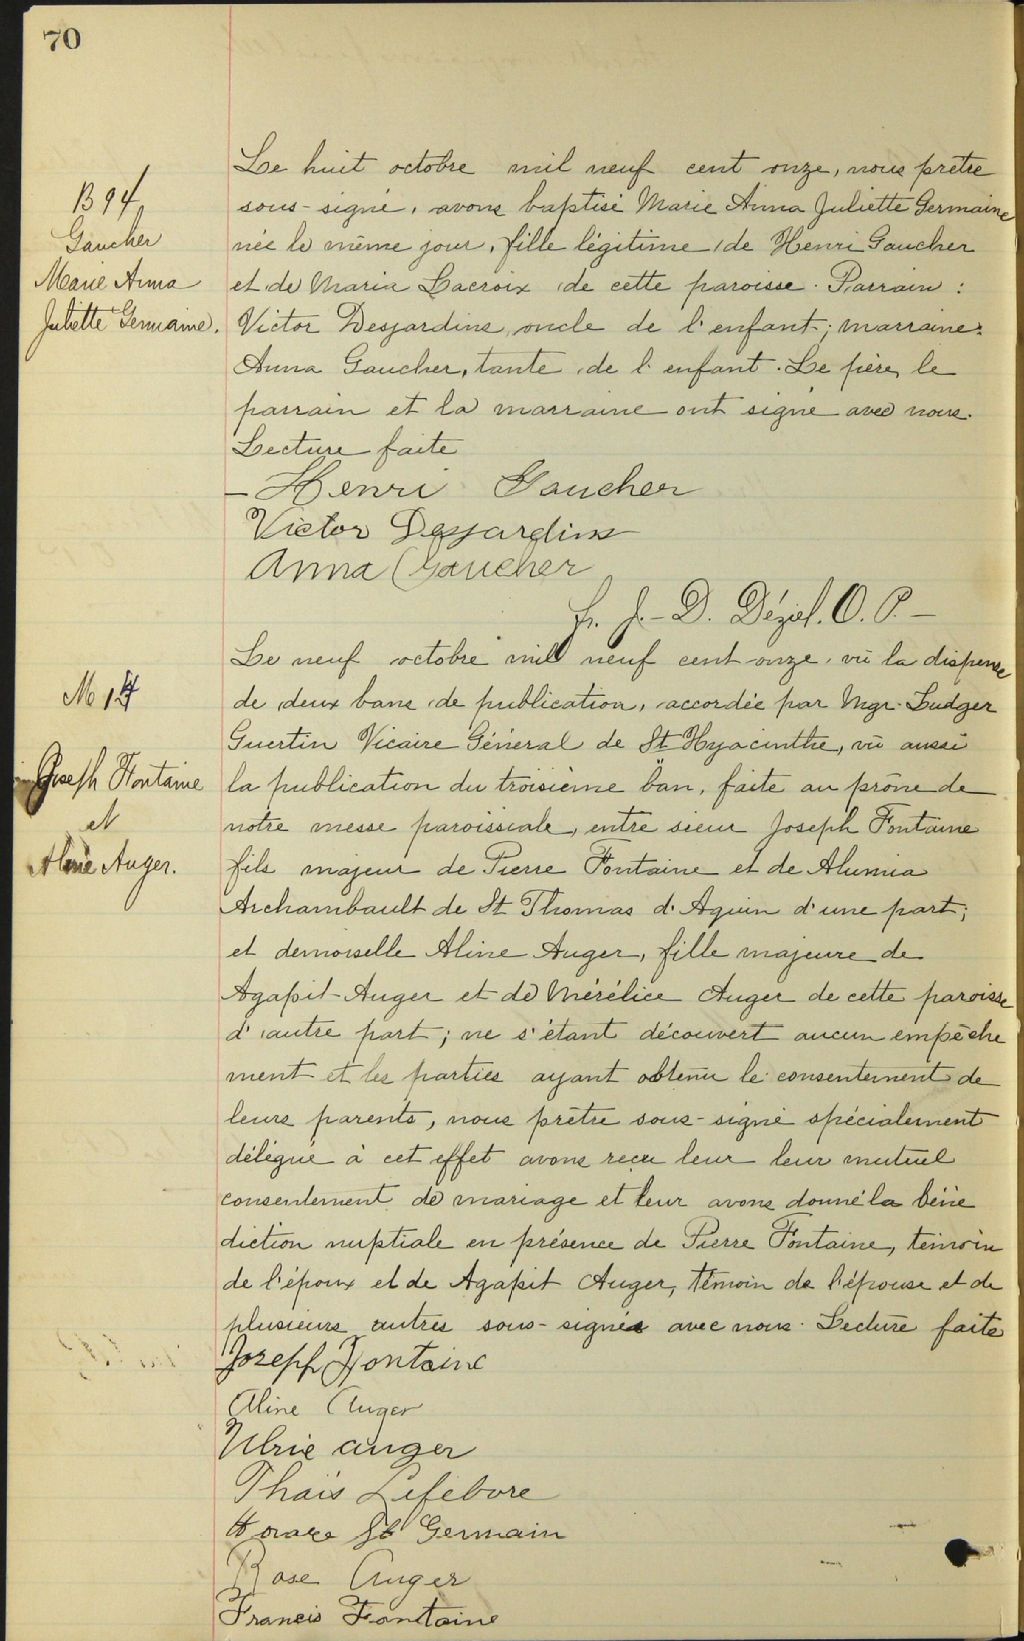 70
B 94
Gaucher
Marie Anna
Juliette Germaine.
Le huit octobre mil neuf cent onze, nous prêtre
sous-signé, avons baptisé Marie Anna Juliette Germaine
née le même jour, fille légitime de Henri Gaucher
et de Maria Lacroix de cette paroisse. Parrain :
Victor Desjardins, oncle de l'enfant; marraine:
Anna Gaucher, tante de l'enfant. Le père, le
parrain et la marraine ont signé avec nous.
Lecture faite
Henri Gaucher
Victor Desjardins
Anna Gaucher
fr. J.-D. Déziel. O. P. -
M
Joseph Fontaine
et
Aline Auger.
Le neuf octobre mil neuf cent onze, vû la dispense
de deux bans de publication, accordée par Mgr. Ludger
Guertin Vicaire Général de St Hyacinthe, vû aussi
la publication du troisième ban, faite au prône de
notre messe paroissiale, entre sieur Joseph Fontaine
fils majeur de Pierre Fontaine et de Alumia
Archambault de St Thomas d'Aquin d'une part;
et demoiselle Aline Auger, fille majeure de
Agapit Auger et de Mérélice Auger de cette paroisse
d'autre part; ne s'étant découvert aucun empêche
ment et les parties ayant obtenu le consentement de
leurs parents, nous prêtre sous-signé spécialement
délégué à cet effet avons reçu leur leur mutuel
consentement de mariage et leur avons donné la béné
diction nuptiale en présence de Pierre Fontaine, témoin
de l'époux et de Agapit Auger, témoin de l'épouse et de
plusieurs autres sous-signés avec nous. Lecture faite
Joseph Fontaine
Aline Auger
Ulric Auger
Thaïs Lefebvre
Horace St Germain
Rose Auger
Francis Fontaine